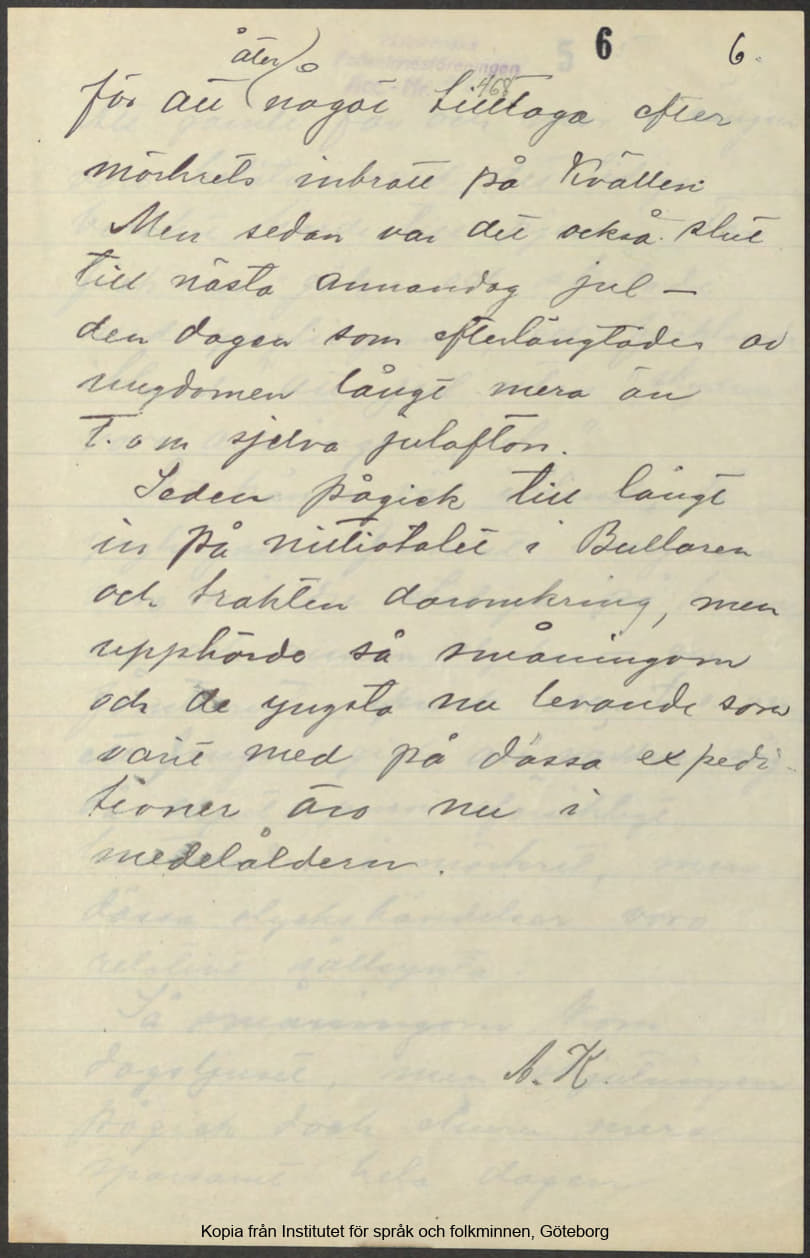 5 6 6.
Folkminnesföreningen
Acc. Nr. 468
åter)
för att (något tilltaga efter
mörkrets inbrott på Kvällen
Men sedan var det också slut
till nästa annandag jul —
den dagen som efterlängtades av
ungdomen långt mera än
t. o m sjelva julafton.
Seden pågick till långt
in på nittiotalet i Bullaren
och trakten daromkring, men
upphörde så småningom
och de yngsta nu levande som
varit med på dässa expedi-
tioner äro nu i
medelåldern.
A. K.
Kopia från Institutet för språk och folkminnen, Göteborg